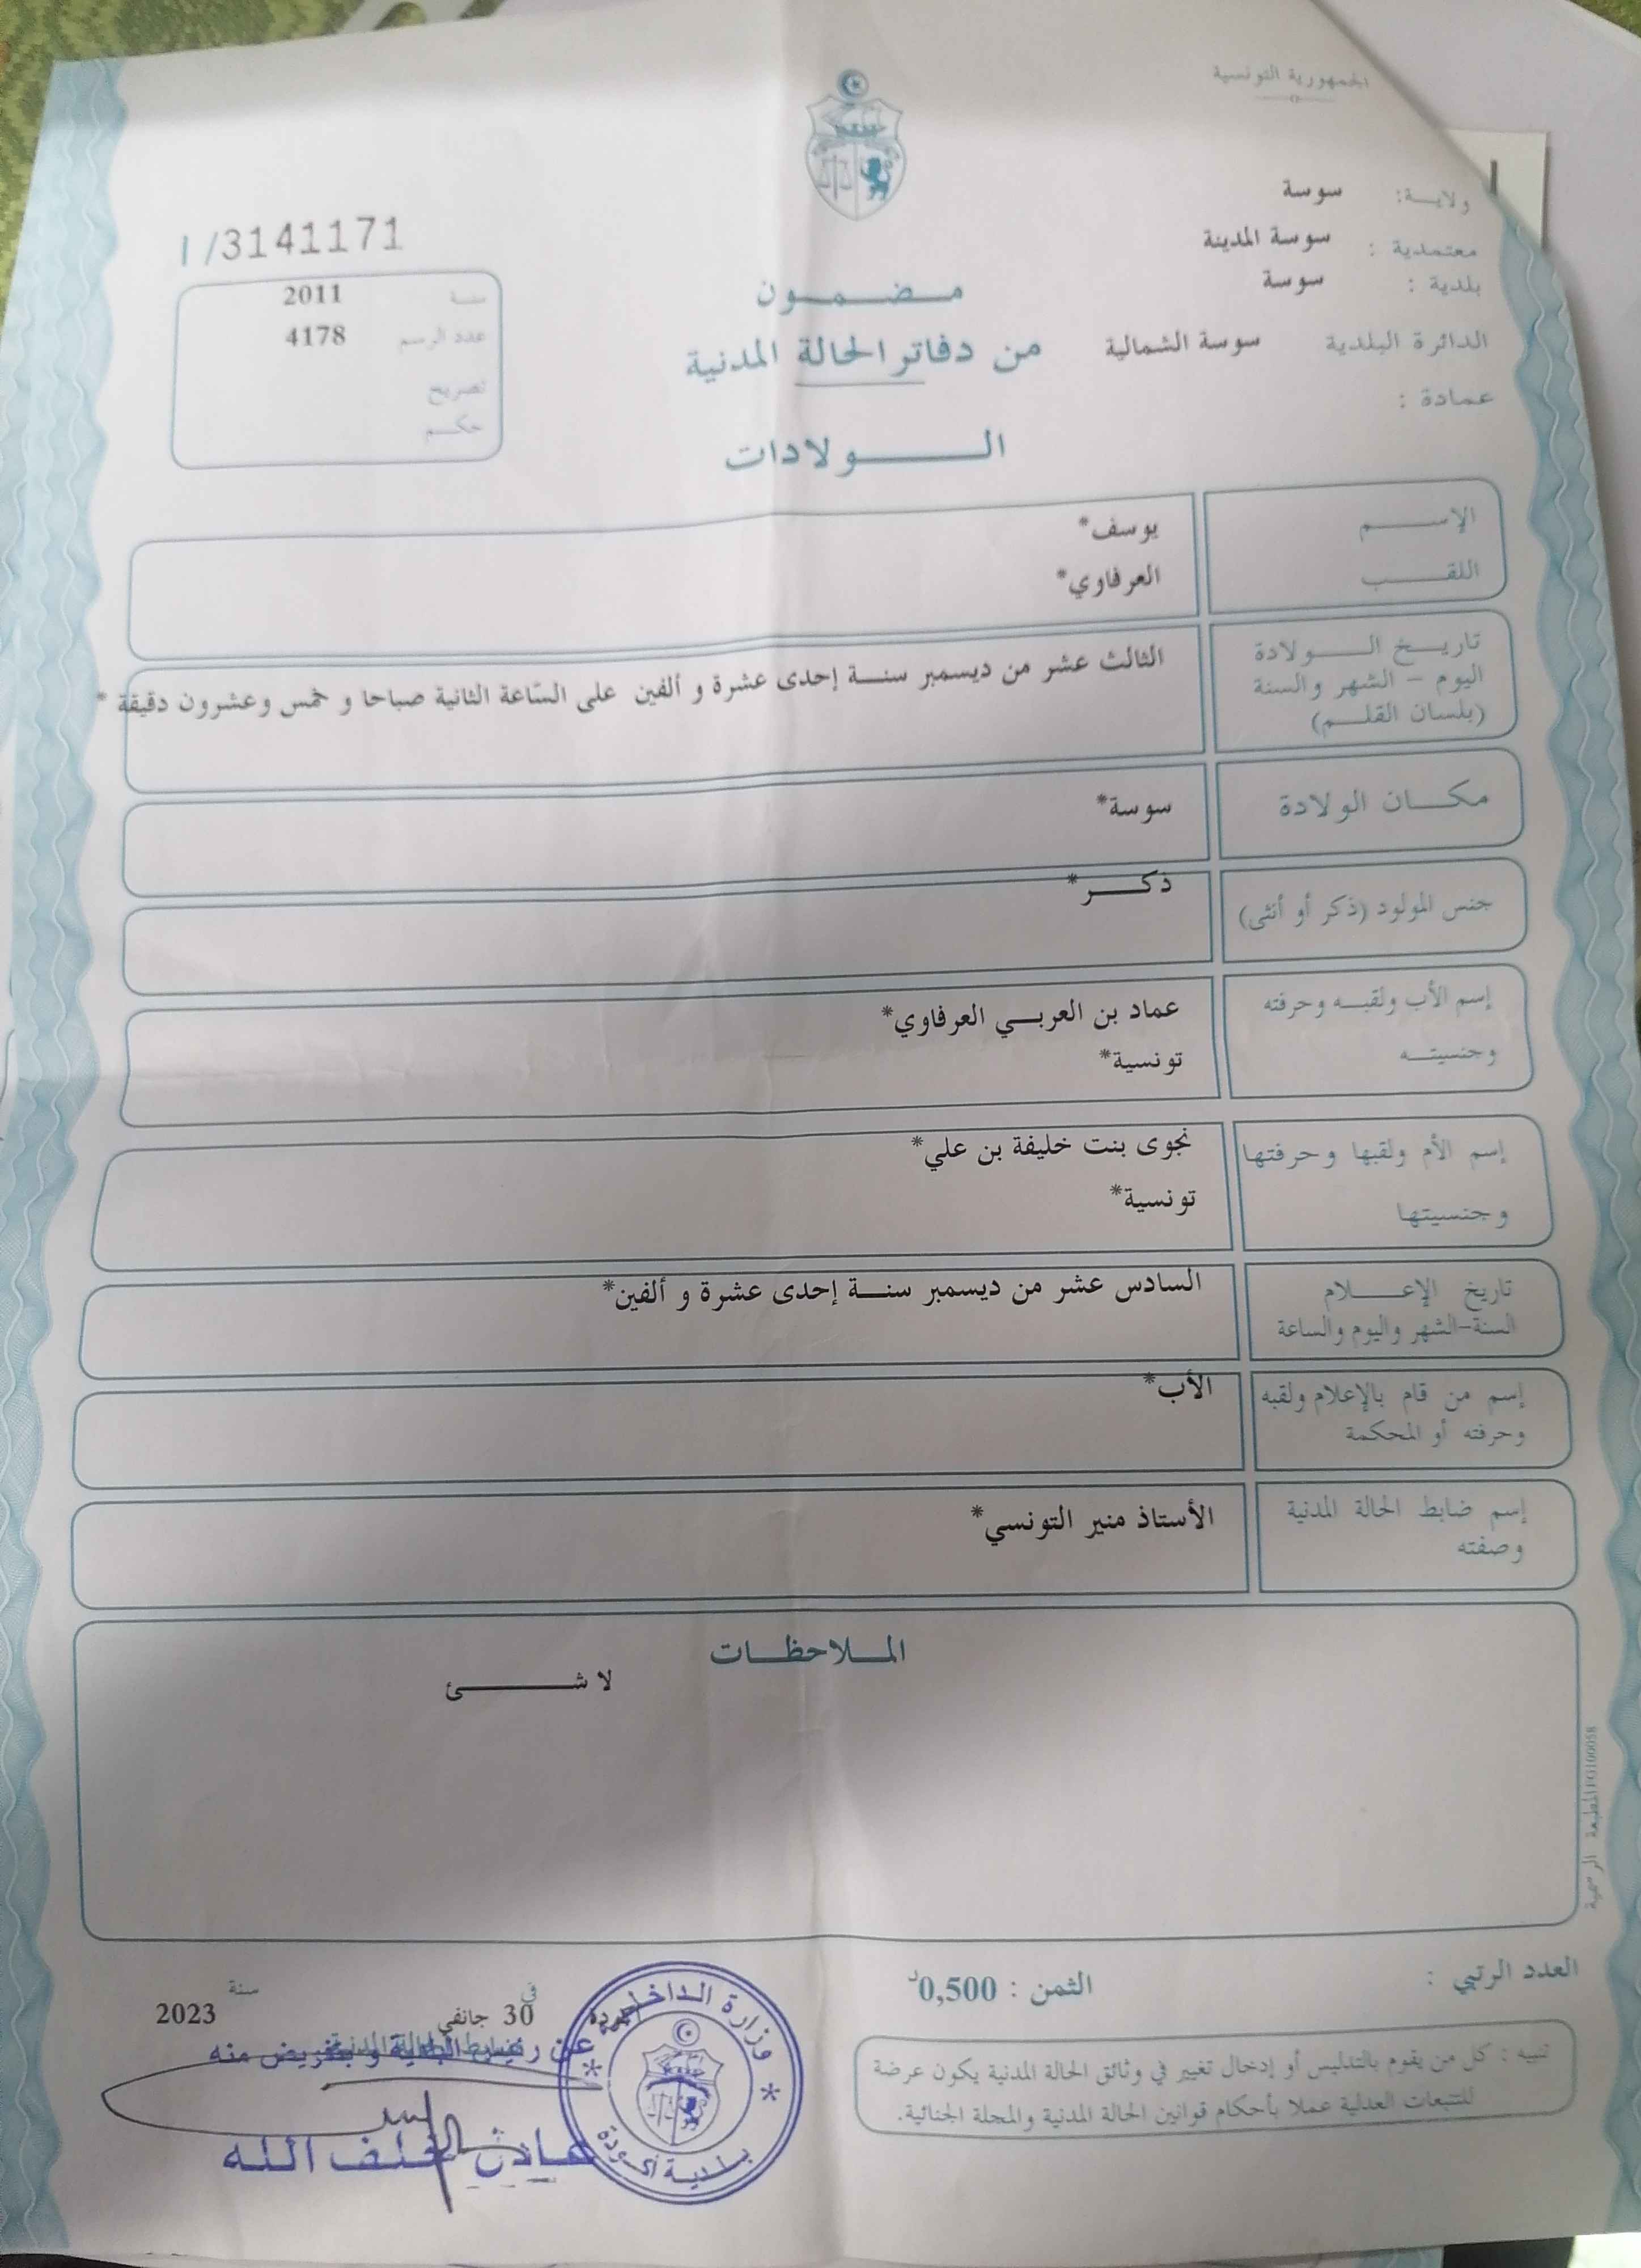 الجمهورية التونسية
ولاية: سوسة
معتمدية : سوسة المدينة
بلدية : سوسة
الدائرة البلدية سوسة الشمالية
عمادة :
I /3141171
سنة 2011
عدد الرسم 4178
تصريح
حكم
مضمون
من دفاتر الحالة المدنية
الولادات
الإسم يوسف*
اللقب العرفاوي*
تاريخ الولادة
اليوم - الشهر والسنة
(بلسان القلم)
الثالث عشر من ديسمبر سنة إحدى عشرة و ألفين على السّاعة الثانية صباحا و خمس وعشرون دقيقة *
مكان الولادة سوسة*
جنس المولود (ذكر أو أنثى) ذكر*
إسم الأب ولقبه وحرفته عماد بن العربي العرفاوي*
وجنسيته تونسية*
إسم الأم ولقبها وحرفتها نجوى بنت خليفة بن علي*
وجنسيتها تونسية*
تاريخ الإعلام السادس عشر من ديسمبر سنة إحدى عشرة و ألفين*
السنة-الشهر واليوم والساعة
إسم من قام بالإعلام ولقبه الأب*
وحرفته أو المحكمة
إسم ضابط الحالة المدنية الأستاذ منير التونسي*
وصفته
الملاحظات
لا شئ
المطبعة الرسمية
العدد الرتبي :
الثمن : 0,500د
تنبيه : كل من يقوم بالتدليس أو إدخال تغيير في وثائق الحالة المدنية يكون عرضة
للتتبعات العدلية عملا بأحكام قوانين الحالة المدنية والمجلة الجنائية.
في 30 جانفي سنة 2023
عن رئيس البلدية و بتفويض منه
خلف الله
وزارة الداخلية
بلدية أكودة